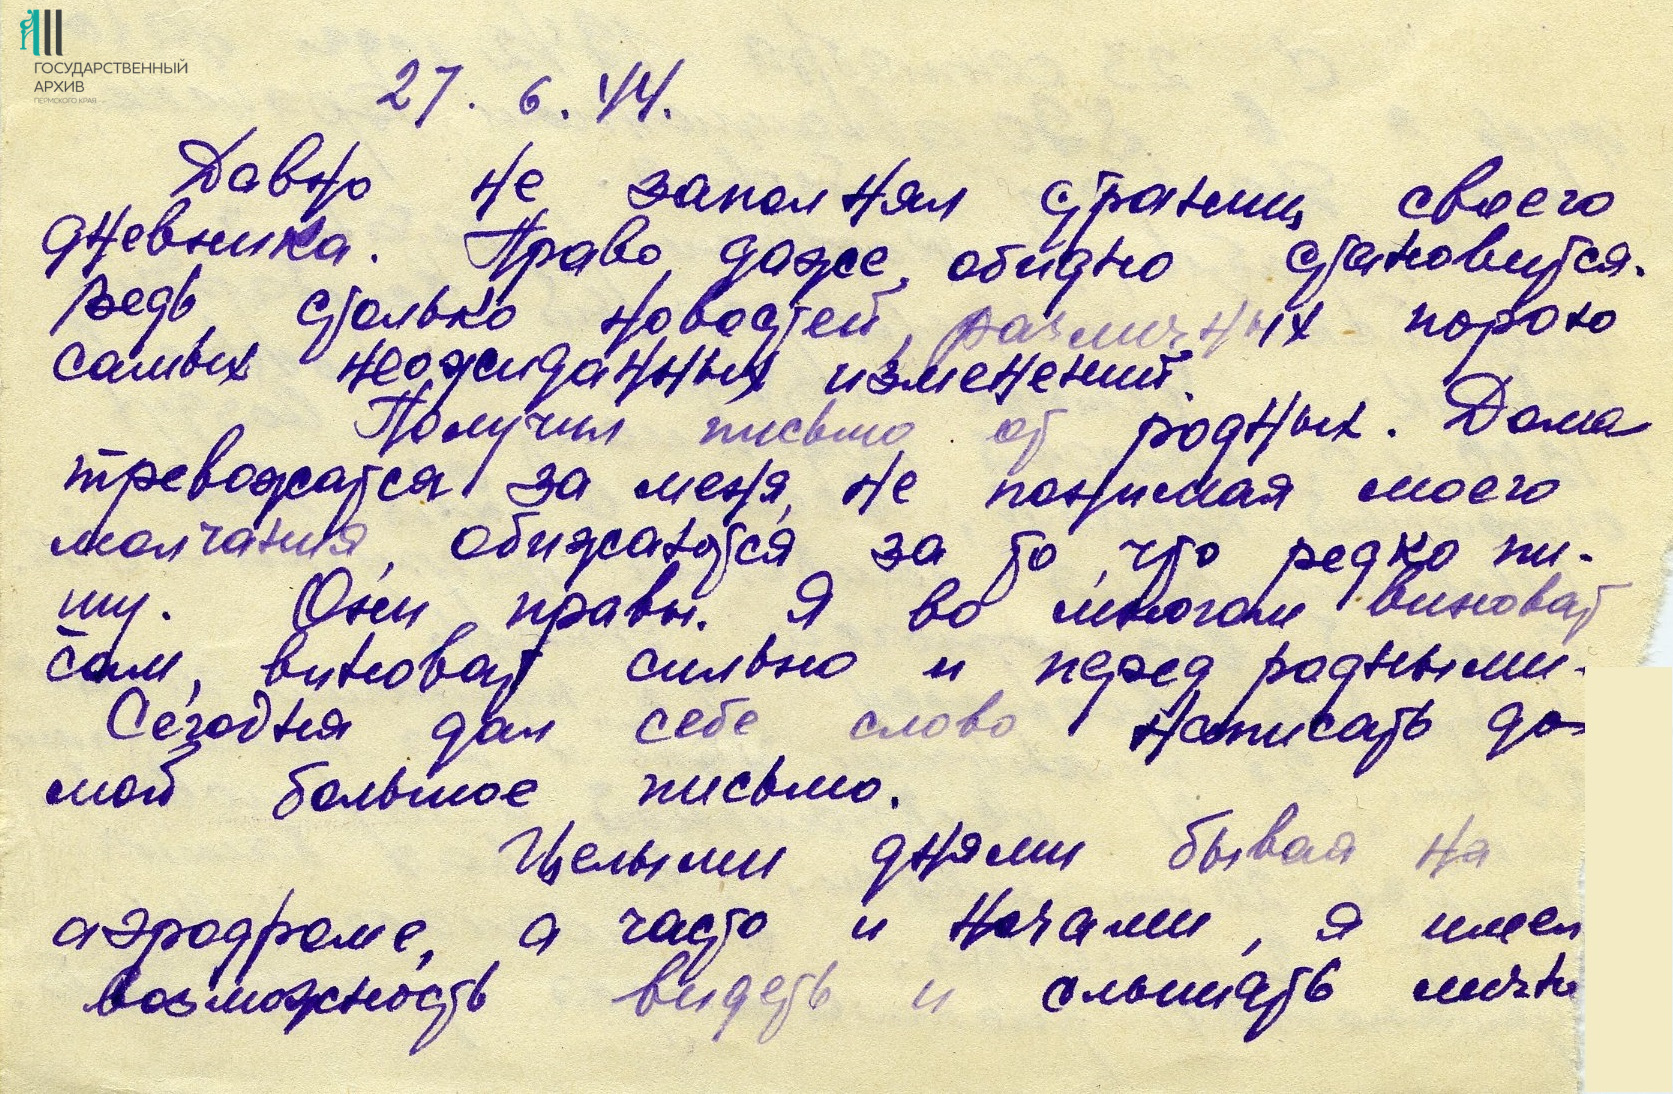 ГОСУДАРСТВЕННЫЙ
АРХИВ
ПЕРМСКОГО КРАЯ
27. 6. 44.
Давно не заполнял страниц своего
дневника. Право, даже, обидно становится.
Ведь, столько новостей, различных порою
самых неожиданных изменений.
Получил письмо от родных. Дома
тревожатся за меня, не понимая моего
молчания, обижаются за то, что редко пи-
шу. Они правы. Я во многом виноват
сам, виноват сильно и перед родными.
Сегодня дал себе слово написать до-
мой большое письмо.
Целыми днями бывая на
аэродроме, а часто и ночами, я имел
возможность видеть и слышать личн